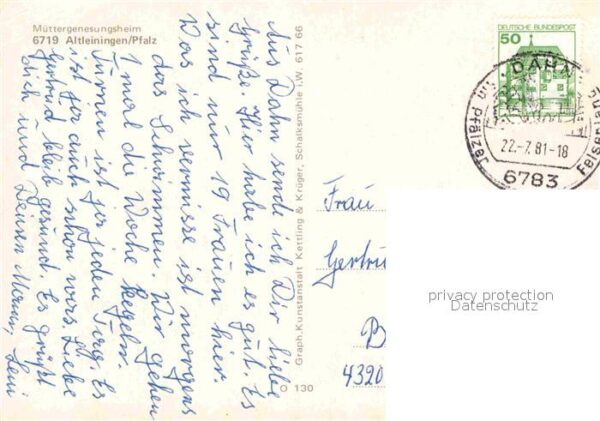 Müttergenesungsheim
6719 Altleiningen/Pfalz
Aus Dahn sende ich Dir liebe
Grüße. Hier habe ich es gut. Es
sind nur 19 Frauen hier.
Was ich vermisse ist morgens
das Schwimmen. Wir gehen
1 mal die Woche kegeln.
Turnen ist ja jeden Tag. Es
ist ja auch schon was. Liebe
Gertrud bleib gesund. Es grüßt
Dich und Deinen Mann, Leni
Graph. Kunstanstalt Kettling & Krüger, Schalksmühle i.W. 617 66
O 130
DEUTSCHE BUNDESPOST
50
DAHN
22.-7.81-18
im Pfälzer
Felsenland
6783
Frau
Gertru
B
4320
privacy protection
Datenschutz